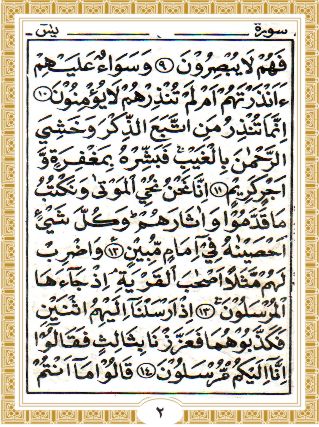 سورة يس
فَهُمْ لَا يُبْصِرُوْنَ ﴿۹﴾ وَسَوَآءٌ عَلَيْهِمْ
ءَاَنْذَرْتَهُمْ اَمْ لَمْ تُنْذِرْهُمْ لَا يُؤْمِنُوْنَ ﴿۱۰﴾
اِنَّمَا تُنْذِرُ مَنِ اتَّبَعَ الذِّكْرَ وَخَشِيَ
الرَّحْمٰنَ بِالْغَيْبِ ۚ فَبَشِّرْهُ بِمَغْفِرَةٍ وَّ
اَجْرٍ كَرِيْمٍ ﴿۱۱﴾ اِنَّا نَحْنُ نُحْيِ الْمَوْتٰى وَنَكْتُبُ
مَا قَدَّمُوْا وَاٰثَارَهُمْ ؕ وَكُلَّ شَيْءٍ
اَحْصَيْنٰهُ فِيْٓ اِمَامٍ مُّبِيْنٍ ﴿۱۲﴾ وَاضْرِبْ
لَهُمْ مَّثَلًا اَصْحٰبَ الْقَرْيَةِ ۘ اِذْ جَآءَهَا
الْمُرْسَلُوْنَ ﴿۱۳﴾ اِذْ اَرْسَلْنَآ اِلَيْهِمُ اثْنَيْنِ
فَكَذَّبُوْهُمَا فَعَزَّزْنَا بِثَالِثٍ فَقَالُوْٓا
اِنَّآ اِلَيْكُمْ مُّرْسَلُوْنَ ﴿۱٤﴾ قَالُوْا مَآ اَنْتُمْ
٢